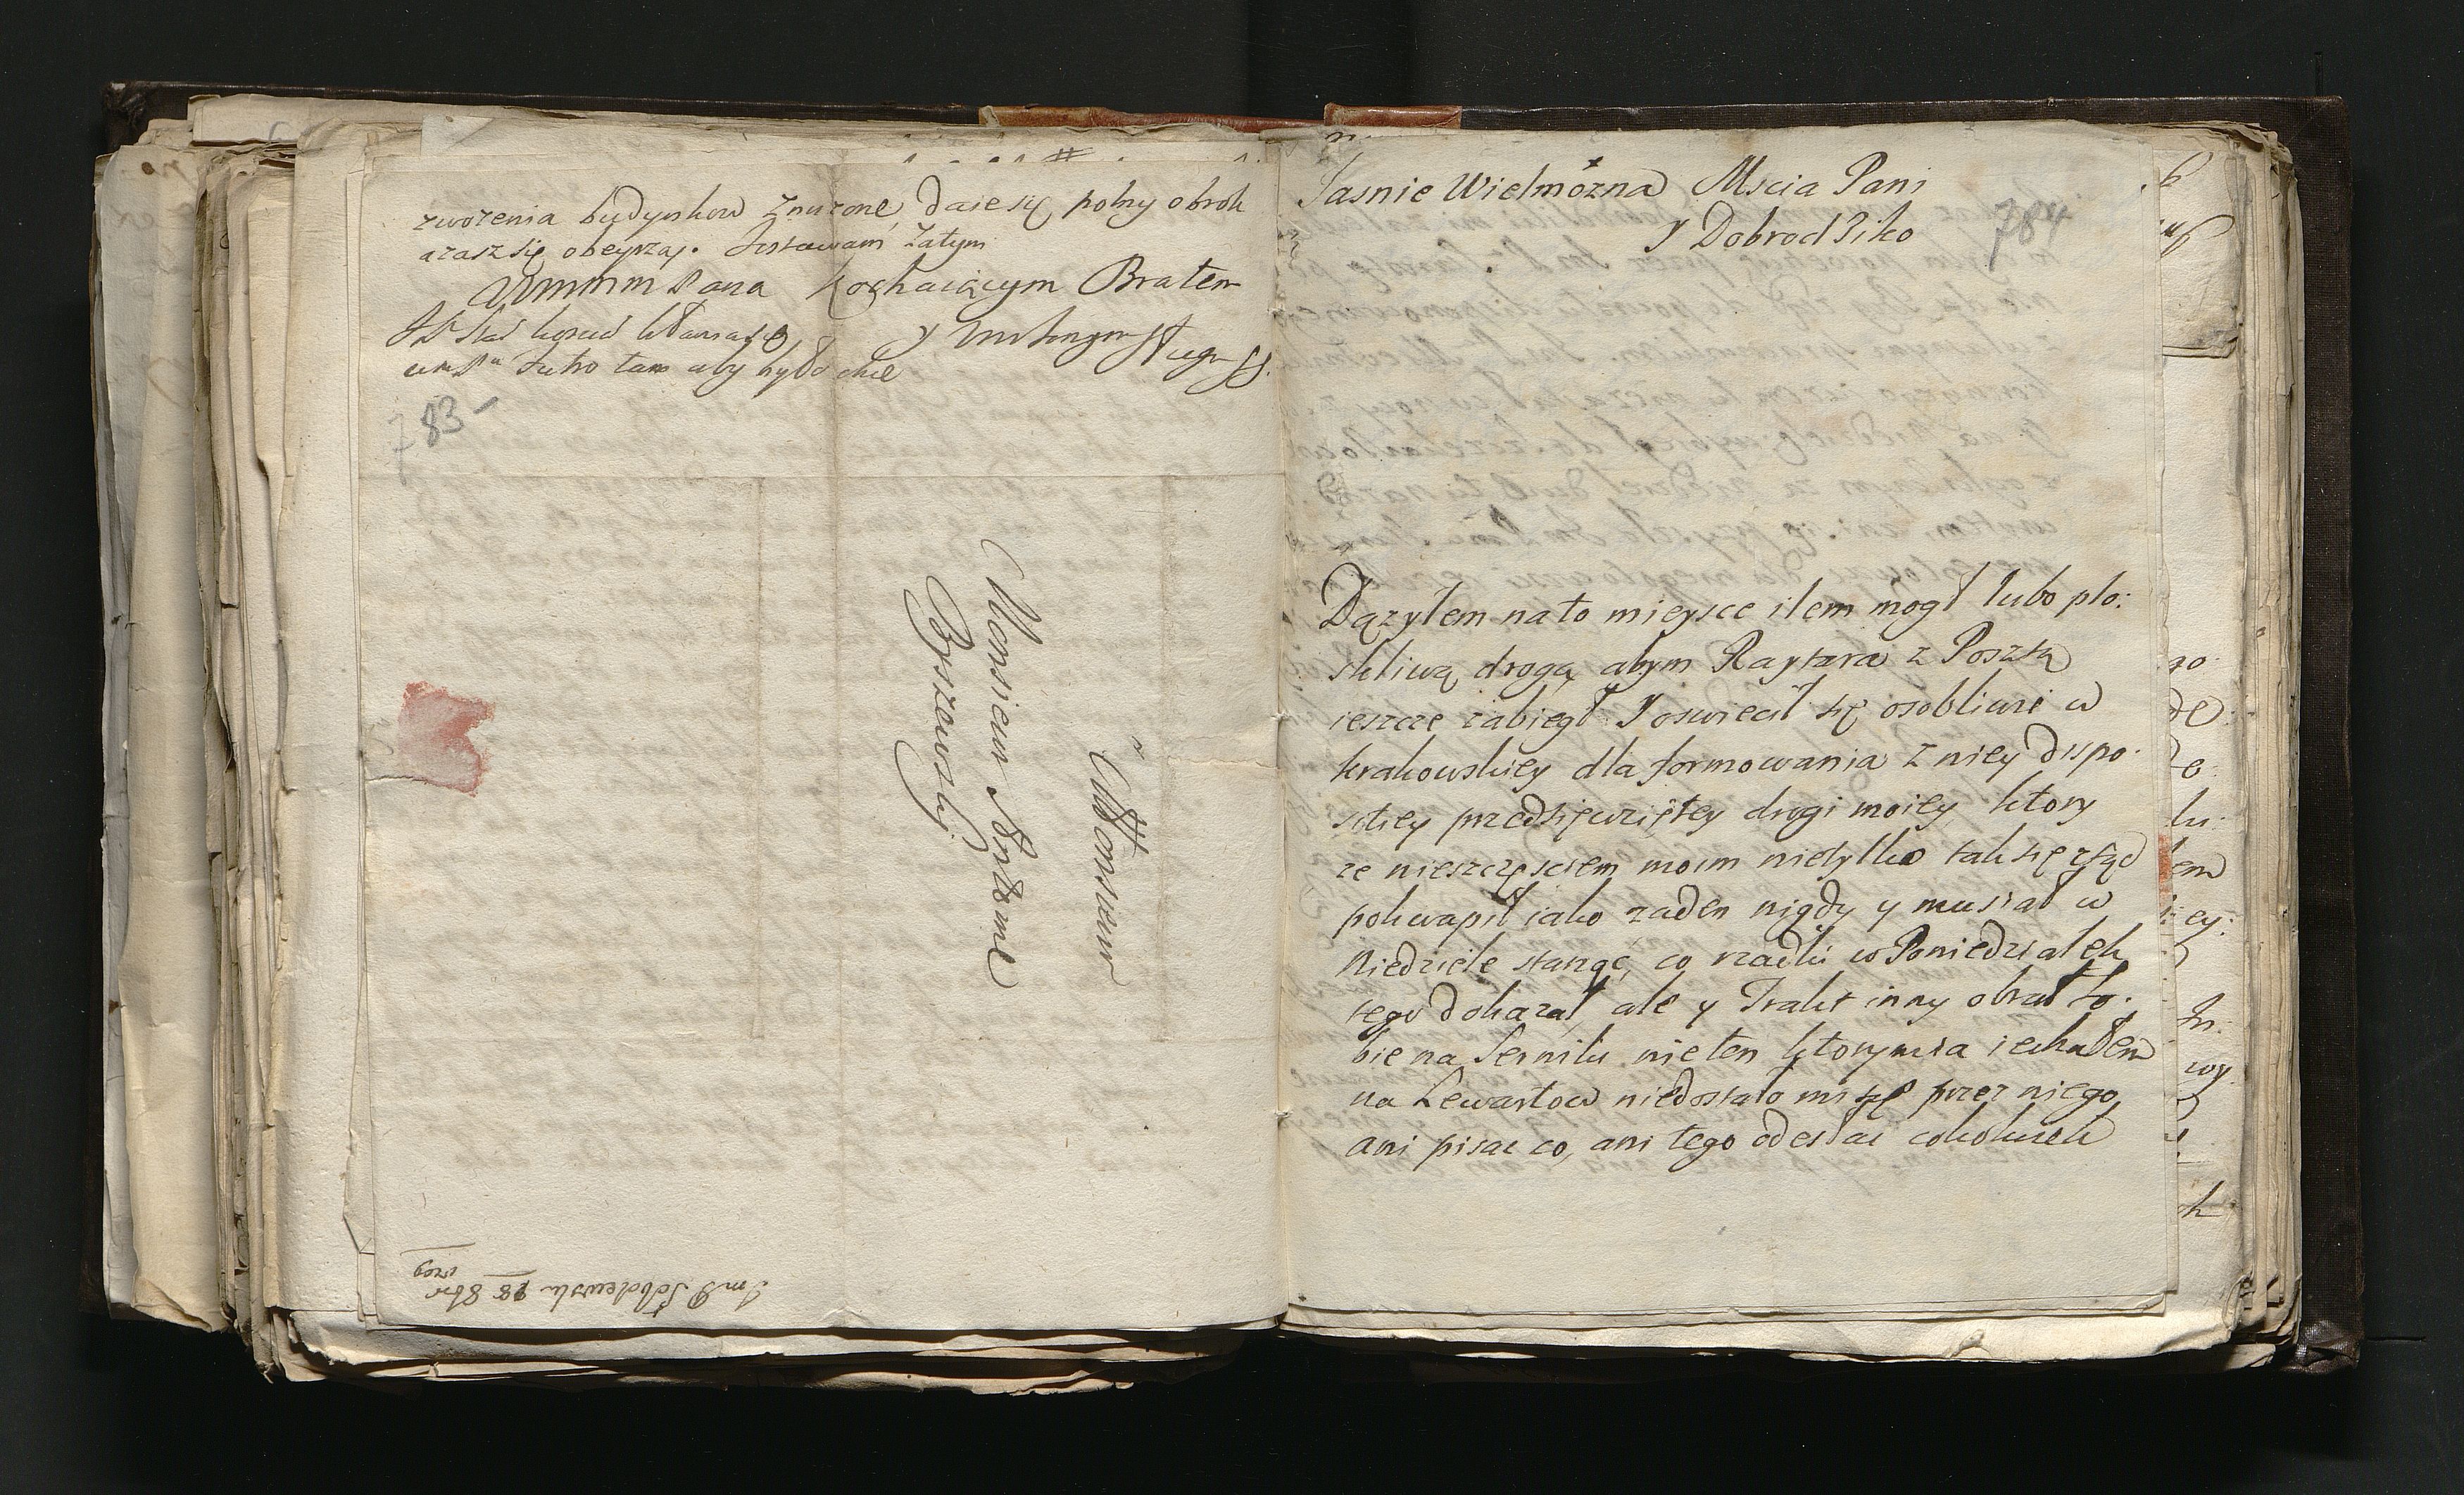 zwozenia budynkow znuzone, daie się polny obrok
a rasz się obeyrzą. Zostawam zatym
WMMMM Pana kochaiącym Bratem
y uniżonym sługą
um Pn Jutro tam aby było chce
783
a Monsieur
Monsieur Antoine
Byszewskij
Im P Sobolewski 28 8br
1729
Jasnie Wielmożna Mscia Pani
y Dobrodziko
784
Dązyłem na to mieysce ilem mogł lubo plo:
skliwą drogą abym Raytara z Posztą
ieszcze zabiegł. I oswiecił się osobliwie w
krakowskiey dla formowania z niey dispo
sitiey przedsięwziętey drogi moiey, ktory
ze nieszczęsciem moim nietylko tak się ztąd
pokwapił iako zaden nigdy y musiał w
Niedziele stanąć, co rzadki w Poniedziałek
tego dokazał, ale y Trakt inny obrał so
bie na Serniki nie ten ktorym ia iechałem
na Lewartow niedostało mi się przez niego
ani pisac co, ani tego odesłac cokolwiek